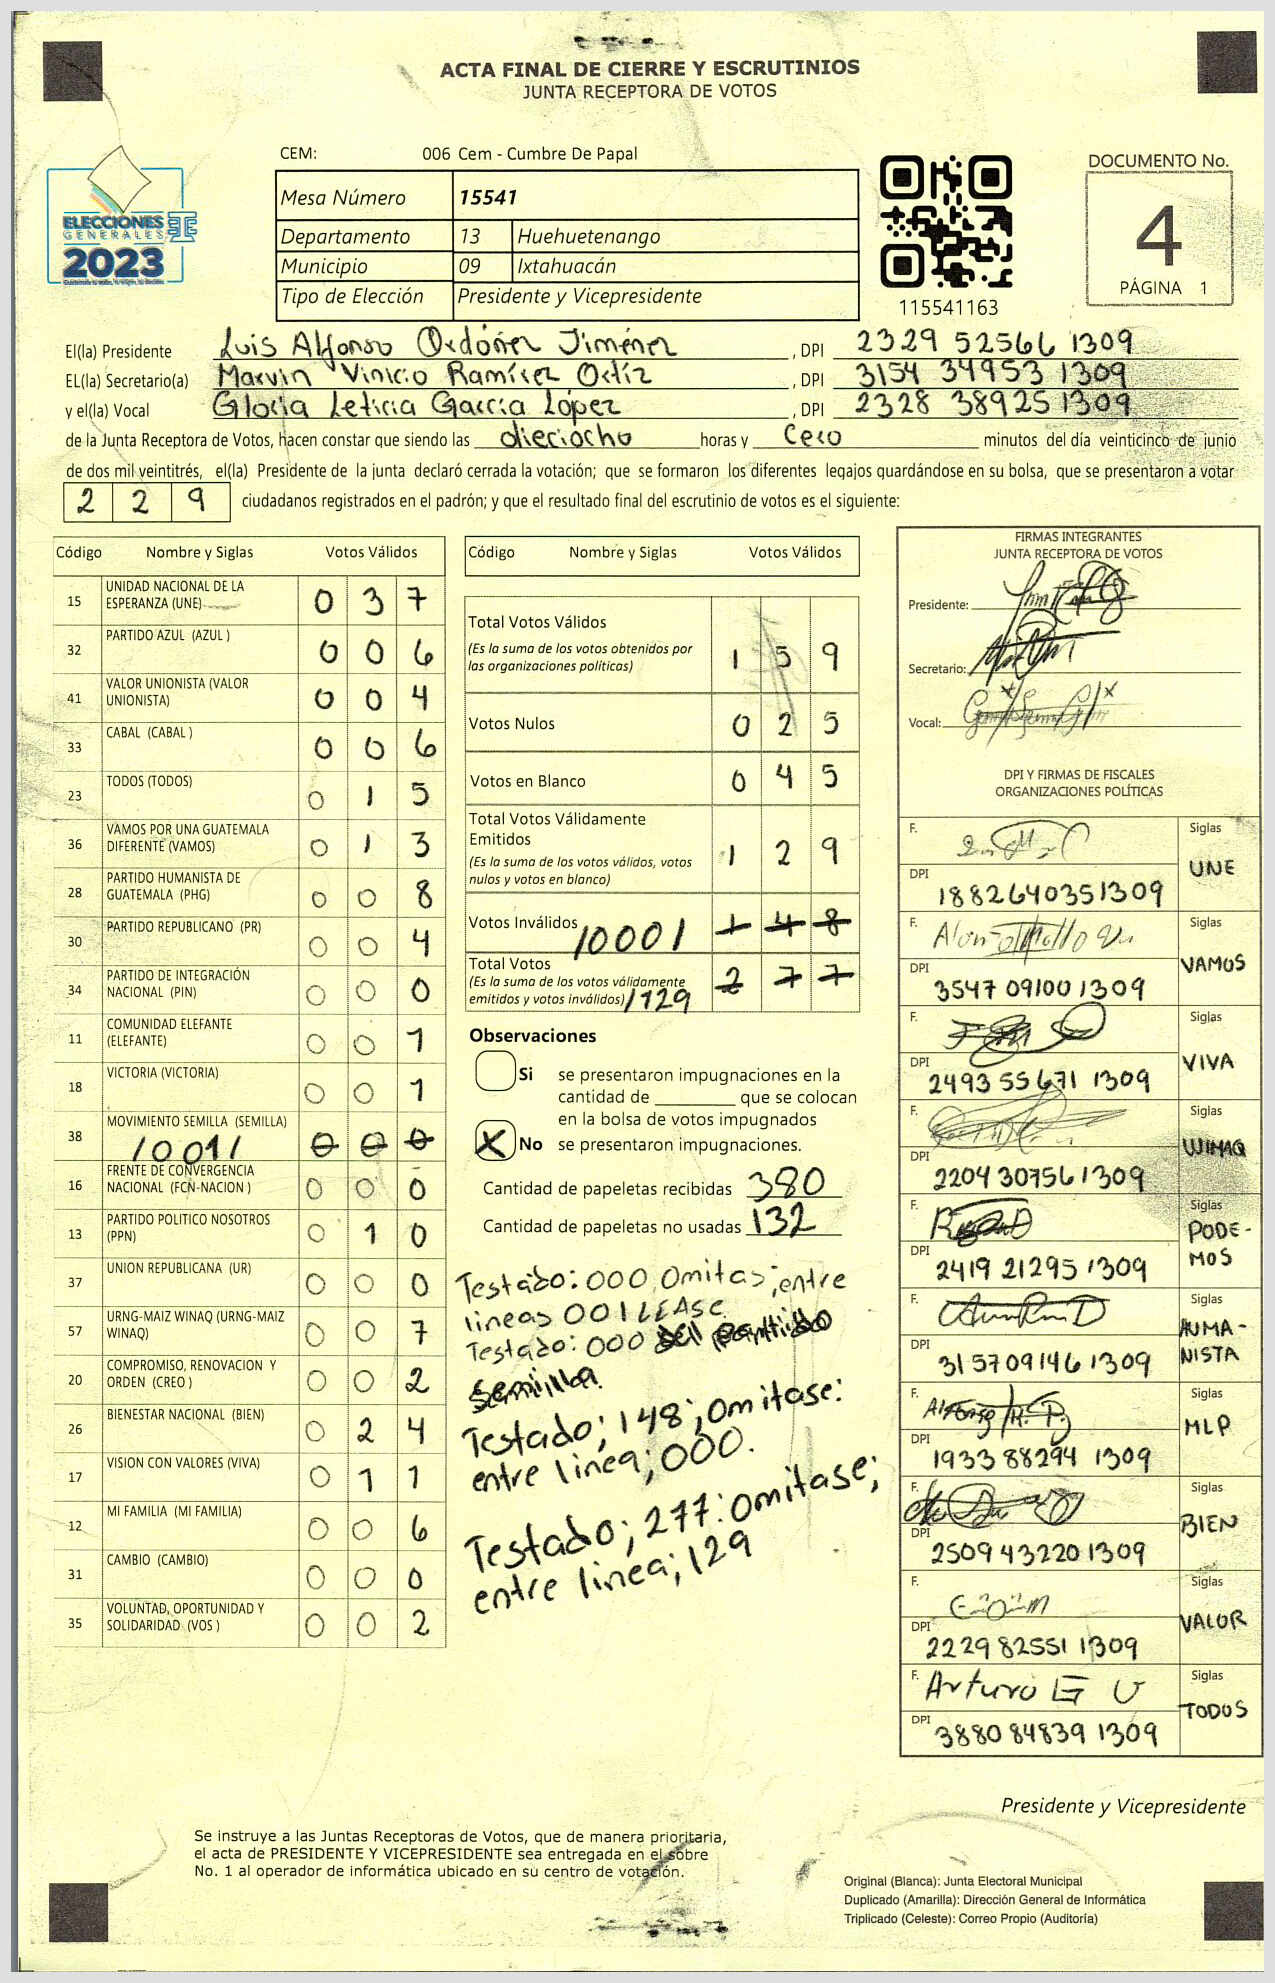 ACTA FINAL DE CIERRE Y ESCRUTINIOS
JUNTA RECEPTORA DE VOTOS
CEM: 006 Cem - Cumbre De Papal
ELECCIONES
GENERALES
2023
Mesa Número 15541
Departamento 13 Huehuetenango
Municipio 09 Ixtahuacán
Tipo de Elección Presidente y Vicepresidente
115541163
DOCUMENTO No.
4
PÁGINA 1
El(la) Presidente Luis Alfonso Ordóñez Jiménez, DPI 2329 52566 1309
EL(la) Secretario(a) Marvin Vinicio Ramírez Ortíz, DPI 3154 34953 1309
y el(la) Vocal Gloria Leticia García López, DPI 2328 38925 1309
de la Junta Receptora de Votos, hacen constar que siendo las dieciocho horas y Cero minutos del día veinticinco de junio
de dos mil veintitrés, el(la) Presidente de la junta declaró cerrada la votación; que se formaron los diferentes legajos guardándose en su bolsa, que se presentaron a votar
2 2 9 ciudadanos registrados en el padrón; y que el resultado final del escrutinio de votos es el siguiente:
Código Nombre y Siglas Votos Válidos
15 UNIDAD NACIONAL DE LA
ESPERANZA (UNE) 0 3 7
32 PARTIDO AZUL (AZUL ) 0 0 6
41 VALOR UNIONISTA (VALOR
UNIONISTA) 0 0 4
33 CABAL (CABAL ) 0 0 6
23 TODOS (TODOS) 0 1 5
36 VAMOS POR UNA GUATEMALA
DIFERENTE (VAMOS) 0 1 3
28 PARTIDO HUMANISTA DE
GUATEMALA (PHG) 0 0 8
30 PARTIDO REPUBLICANO (PR) 0 0 4
34 PARTIDO DE INTEGRACIÓN
NACIONAL (PIN) 0 0 0
11 COMUNIDAD ELEFANTE
(ELEFANTE) 0 0 1
18 VICTORIA (VICTORIA) 0 0 1
38 MOVIMIENTO SEMILLA (SEMILLA)
/001/ 0 0 0
16 FRENTE DE CONVERGENCIA
NACIONAL (FCN-NACION ) 0 0 0
13 PARTIDO POLITICO NOSOTROS
(PPN) 0 1 0
37 UNION REPUBLICANA (UR) 0 0 0
57 URNG-MAIZ WINAQ (URNG-MAIZ
WINAQ) 0 0 7
20 COMPROMISO, RENOVACION Y
ORDEN (CREO ) 0 0 2
26 BIENESTAR NACIONAL (BIEN) 0 2 4
17 VISION CON VALORES (VIVA) 0 1 1
12 MI FAMILIA (MI FAMILIA) 0 0 6
31 CAMBIO (CAMBIO) 0 0 0
35 VOLUNTAD, OPORTUNIDAD Y
SOLIDARIDAD (VOS ) 0 0 2
Código Nombre y Siglas Votos Válidos
Total Votos Válidos
(Es la suma de los votos obtenidos por
las organizaciones políticas) 1 5 9
Votos Nulos 0 2 5
Votos en Blanco 0 4 5
Total Votos Válidamente
Emitidos
(Es la suma de los votos válidos, votos
nulos y votos en blanco) 1 2 9
Votos Inválidos /000/ 1 4 8
Total Votos
(Es la suma de los votos válidamente
emitidos y votos inválidos) /129 2 7 7
Observaciones
Si se presentaron impugnaciones en la
cantidad de ________ que se colocan
en la bolsa de votos impugnados
X No se presentaron impugnaciones.
Cantidad de papeletas recibidas 380
Cantidad de papeletas no usadas 132
Testado: 000 Omitas; entre
lineas 001 LEASE
Testado: 000 del partido
semilla.
Testado; 148; omitase:
entre linea; 000.
Testado; 277: omitase;
entre linea; 129
FIRMAS INTEGRANTES
JUNTA RECEPTORA DE VOTOS
Presidente:
Secretario:
Vocal:
DPI Y FIRMAS DE FISCALES
ORGANIZACIONES POLÍTICAS
F. Siglas
UNE
DPI 188264035 1309
F. Siglas
VAMOS
DPI 3547 09100 1309
F. Siglas
VIVA
DPI 2493 55671 1309
F. Siglas
WINAQ
DPI 2204 30756 1309
F. Siglas
PODE-
MOS
DPI 2419 21295 1309
F. Siglas
HUMA-
NISTA
DPI 315709146 1309
F. Siglas
MLP
DPI 1933 88294 1309
F. Siglas
BIEN
DPI 2509 43220 1309
F. Siglas
VALOR
DPI 2229 82551 1309
F. Arturo G U Siglas
TODOS
DPI 3880 84839 1309
Presidente y Vicepresidente
Se instruye a las Juntas Receptoras de Votos, que de manera prioritaria,
el acta de PRESIDENTE Y VICEPRESIDENTE sea entregada en el sobre
No. 1 al operador de informática ubicado en su centro de votación.
Original (Blanca): Junta Electoral Municipal
Duplicado (Amarilla): Dirección General de Informática
Triplicado (Celeste): Correo Propio (Auditoría)